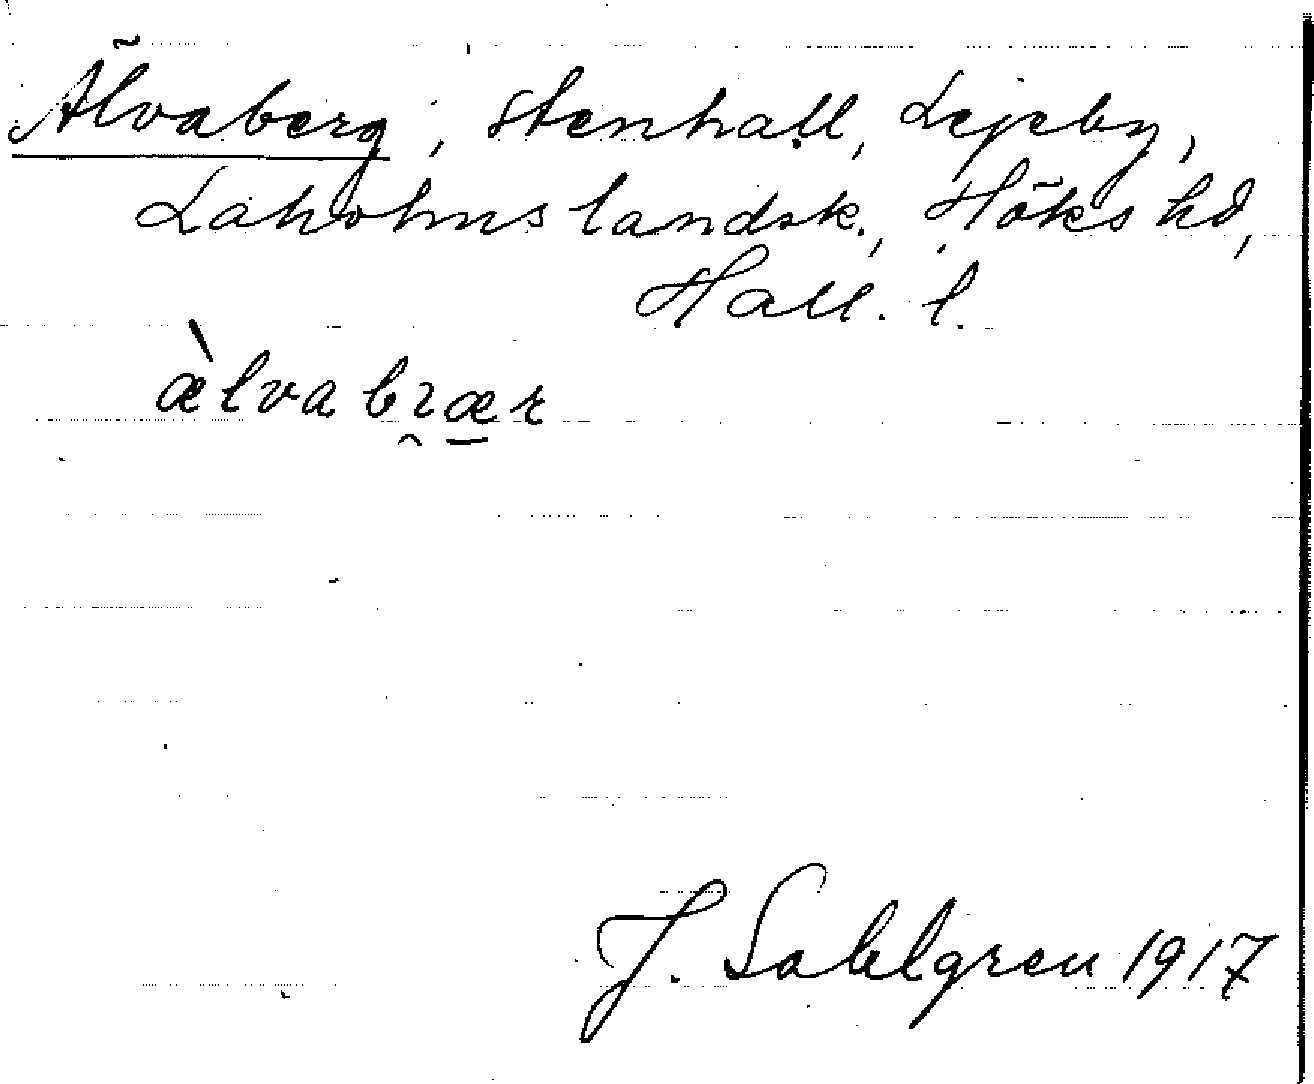 Älvaberg, stenhall, Lejeby,
Laholms landsk., Höks hd,
Hall. l.
æ̀lvabrær
J. Sahlgren 1917